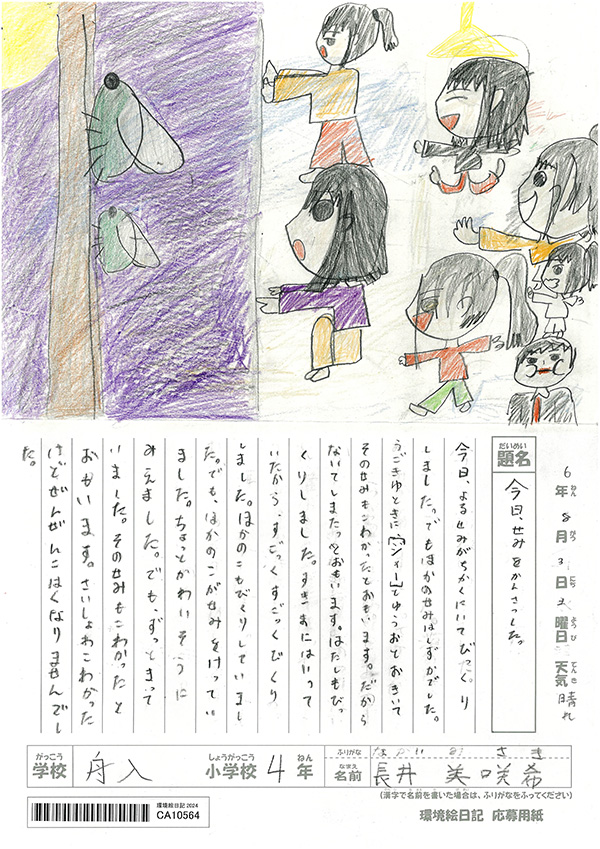 6年8月3日土曜日 天気晴れ
ねん がつ にち ようび てんき
だいめい
題名
今日、せみをかんさつした。
今日、よるせみがちかくにいてびっくり
しました。でもほかのせみはしずかでした。
うごきゆときに「ウィーン」てゆうおとおきいて
そのせみもこわかったとおもいます。だから
ないてしまたっとおもいます。はたしもびっ
くりしました。すきまにはいって
いたから、すごっくすごっくびくり
しました。ほかのこもびくりしていまし
た。でも、ほかのこがせみをけってい
ました。ちょっとかわいそうに
みえました。でも、ずっときって
いました。そのせみもこわかったと
おもいます。さいしょわこわかった
けどぜんぜんこはくなりませんでし
た。
がっこう
学校
舟入
しょうがっこう
小学校
4
ねん
年
ふりがな
ながい みさき
なまえ
名前
長井 美咲希
(漢字で名前を書いた場合は、ふりがなをふってください)
環境絵日記 2024
CA10564
環境絵日記 応募用紙